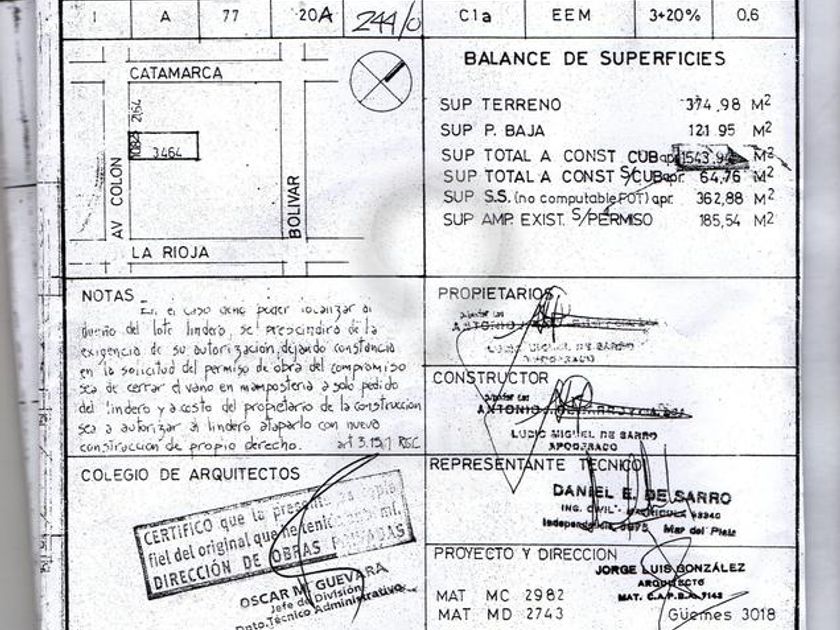 I A 77 20A 244/0 C1a EEM 3+20% 0.6
CATAMARCA
2164
3464
AV COLON
BOLIVAR
LA RIOJA
BALANCE DE SUPERFICIES
SUP TERRENO 374,98 M2
SUP P. BAJA 121.95 M2
SUP TOTAL A CONST CUB apr. 1543,94 M2
SUP TOTAL A CONST S/CUB apr. 64,76 M2
SUP S.S. (no computable FOT) apr. 362,88 M2
SUP AMP. EXIST. S/PERMISO 185,54 M2
NOTAS
En el caso de no poder localizar al
dueño del lote lindero, se prescindirá de la
exigencia de su autorización, dejando constancia
en la solicitud del permiso de obra del compromiso
sea de cerrar el vano en mamposteria a solo pedido
del lindero y a costo del propietario de la construccion
sea a autorizar al lindero ataparlo con nueva
construccion de propio derecho. art 3.15.1 RGC
PROPIETARIOS
ANTONIO
LUCIO MIGUEL DE SARRO
APODERADO
CONSTRUCTOR
ANTONIO
LUCIO MIGUEL DE SARRO
APODERADO
COLEGIO DE ARQUITECTOS
CERTIFICO que la presente es copia
fiel del original que he tenido ante mi.
DIRECCIÓN DE OBRAS PRIVADAS
OSCAR M. GUEVARA
Jefe de División
Dpto. Técnico Administrativo
REPRESENTANTE TECNICO
DANIEL E. DE SARRO
ING. CIVIL - MATRICULA
Independencia Mar del Plata
PROYECTO Y DIRECCION
JORGE LUIS GONZÁLEZ
ARQUITECTO
MAT. C.A.P.B.A. 7143
MAT MC 2982
MAT MD 2743 Güemes 3018